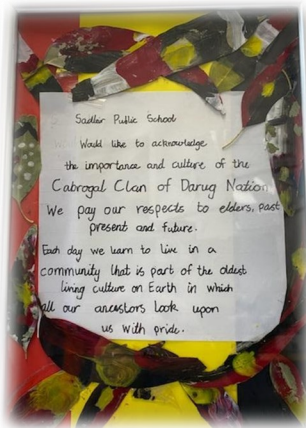 Sadleir Public School
Would like to acknowledge
the importance and culture of the
Cabrogal Clan of Darug Nation
We pay our respects to elders, past
present and future.
Each day we learn to live in a
community that is part of the oldest
living culture on Earth in which
all our ancestors look upon
us with pride.